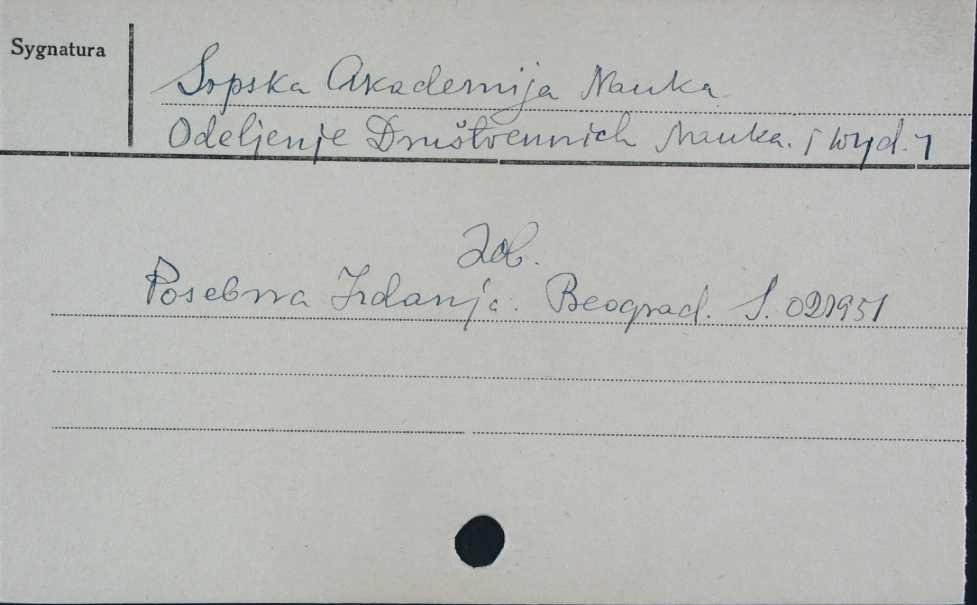 Sygnatura
Srpska Akademija Nauka
Odeljenje Društvennich Nauka. /wyd./
Zob.
Posebna Izdanja. Beograd. S. 021951